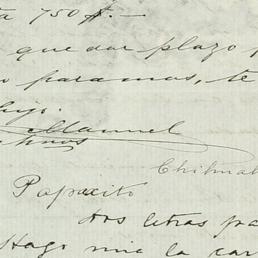 ta 750 ft. —
que dar plazo p
o para mas, te
hijo.
Manuel
Chihuah
Papacito
dos letras pa
Hago mia la car